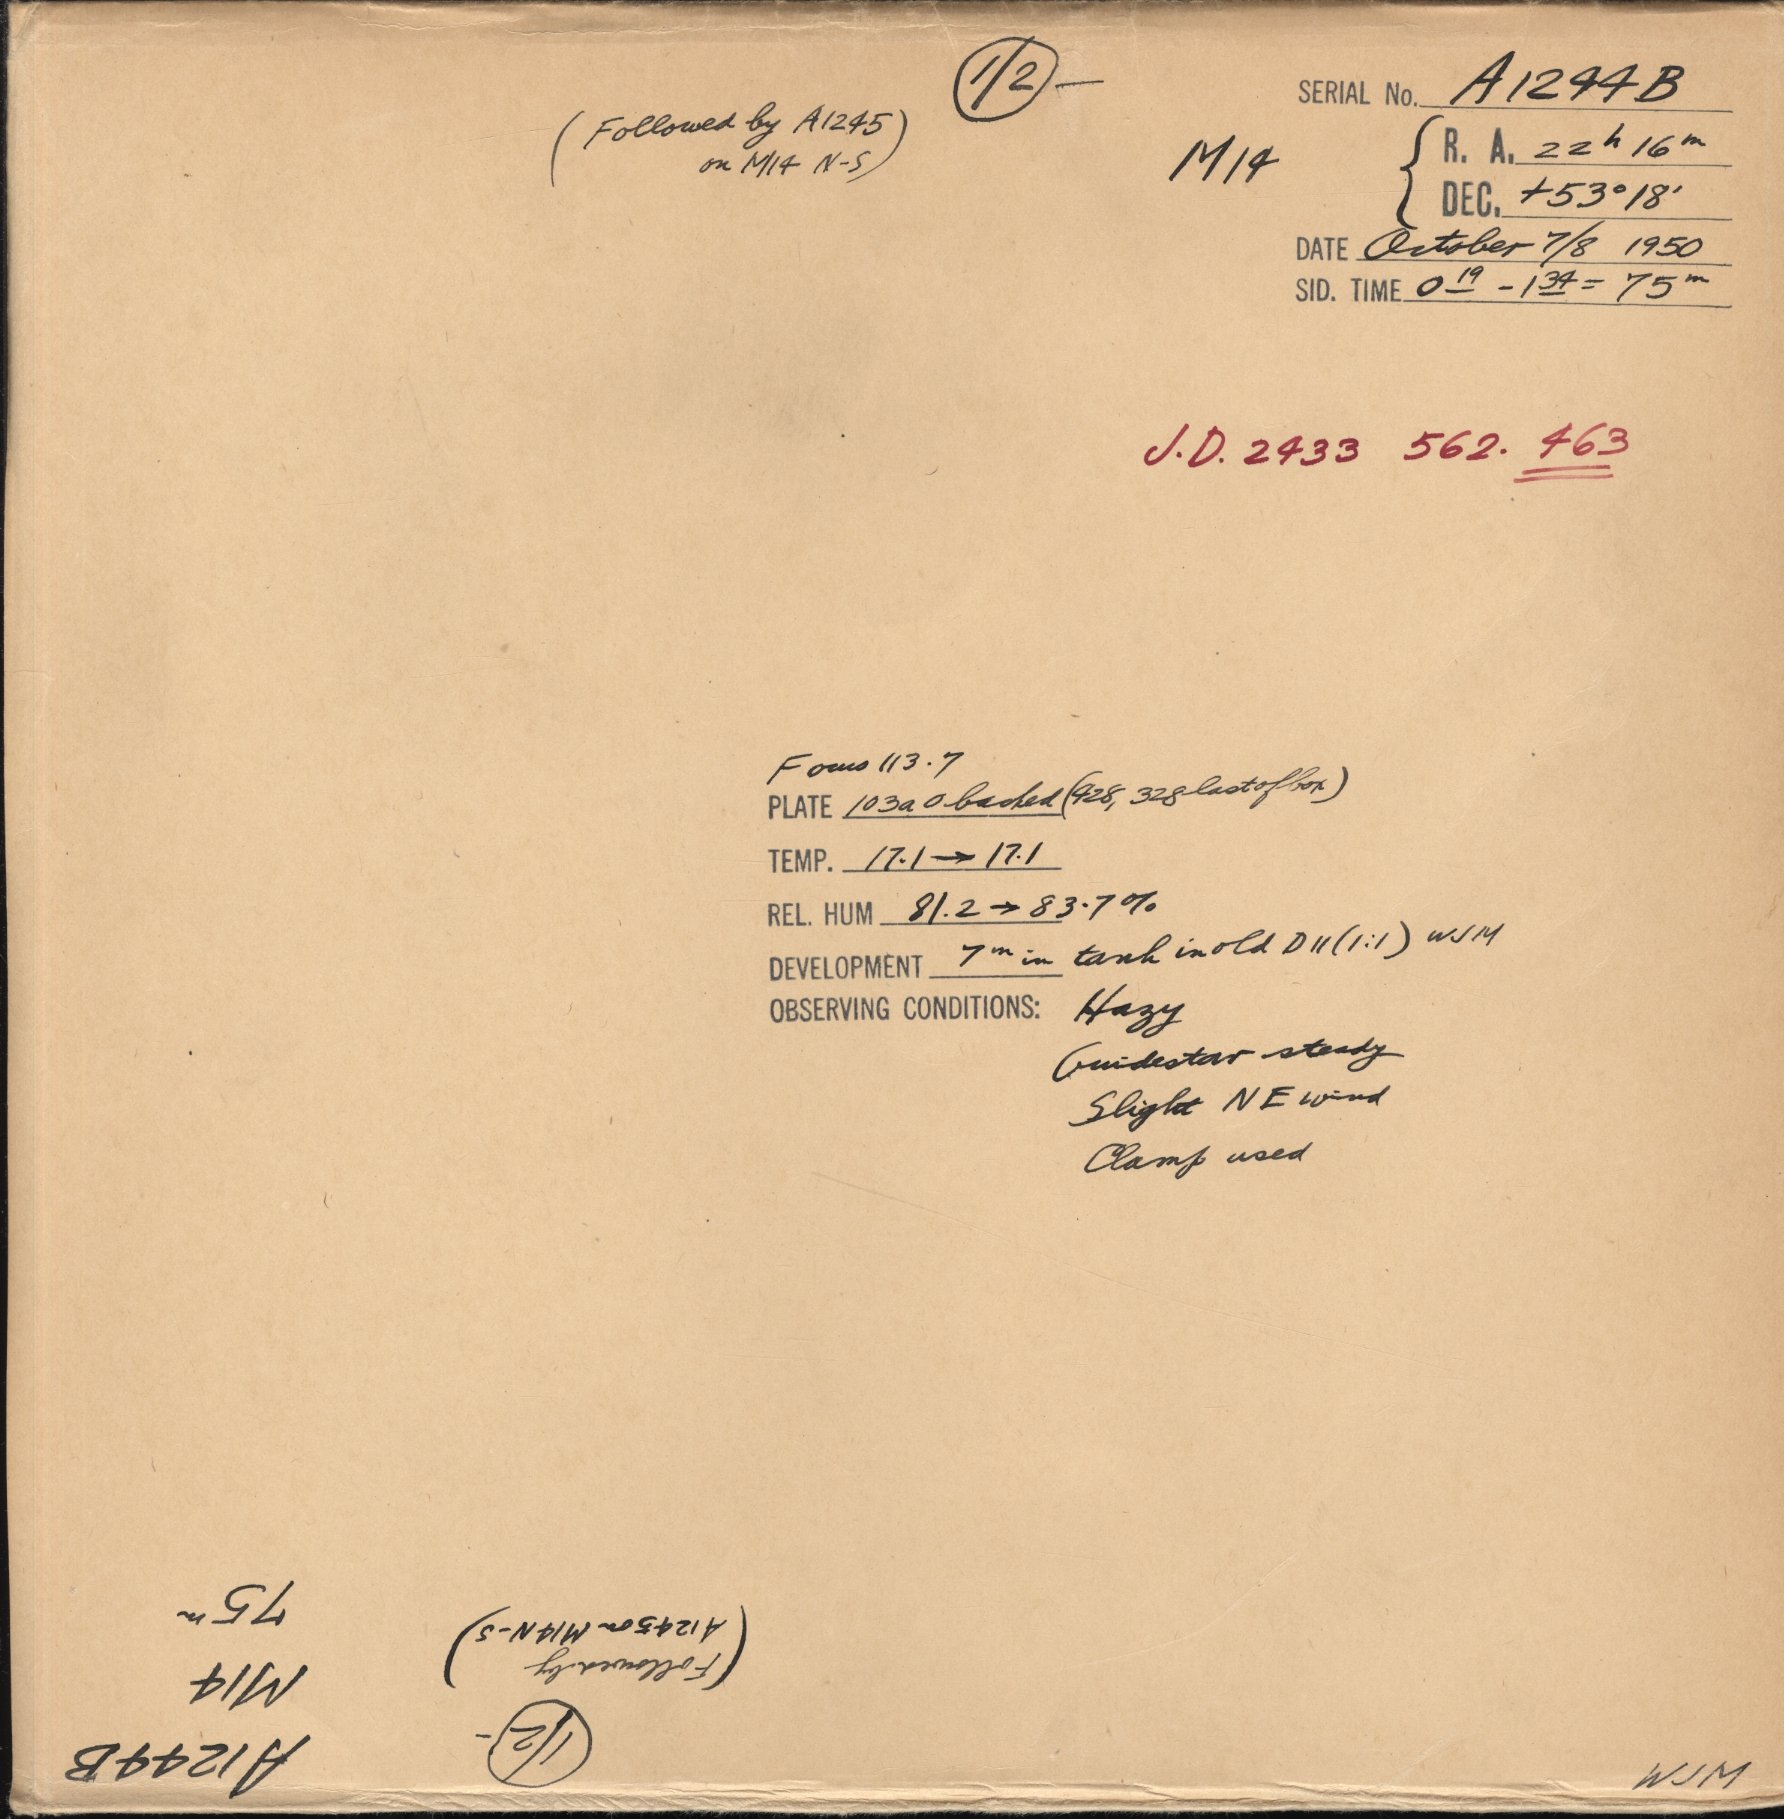 1/2 -
(Followed by A1245
on M14 N-S)
SERIAL No. A1244B
M14
R. A. 22h 16m
DEC. +53° 18'
DATE October 7/8 1950
SID. TIME 0 19 - 1 34 = 75m
J.D. 2433 562. 463
Focus 113.7
PLATE 103a O backed (428, 328 last of box)
TEMP. 17.1 → 17.1
REL. HUM 81.2 → 83.7%
DEVELOPMENT 7m in tank in old D11 (1:1) WJM
OBSERVING CONDITIONS: Hazy
Guidestar steady
Slight NE wind
Clamp used
WJM
A1244B
M14
75m
1/2 -
(Followed by
A1245 on M14 N-S)